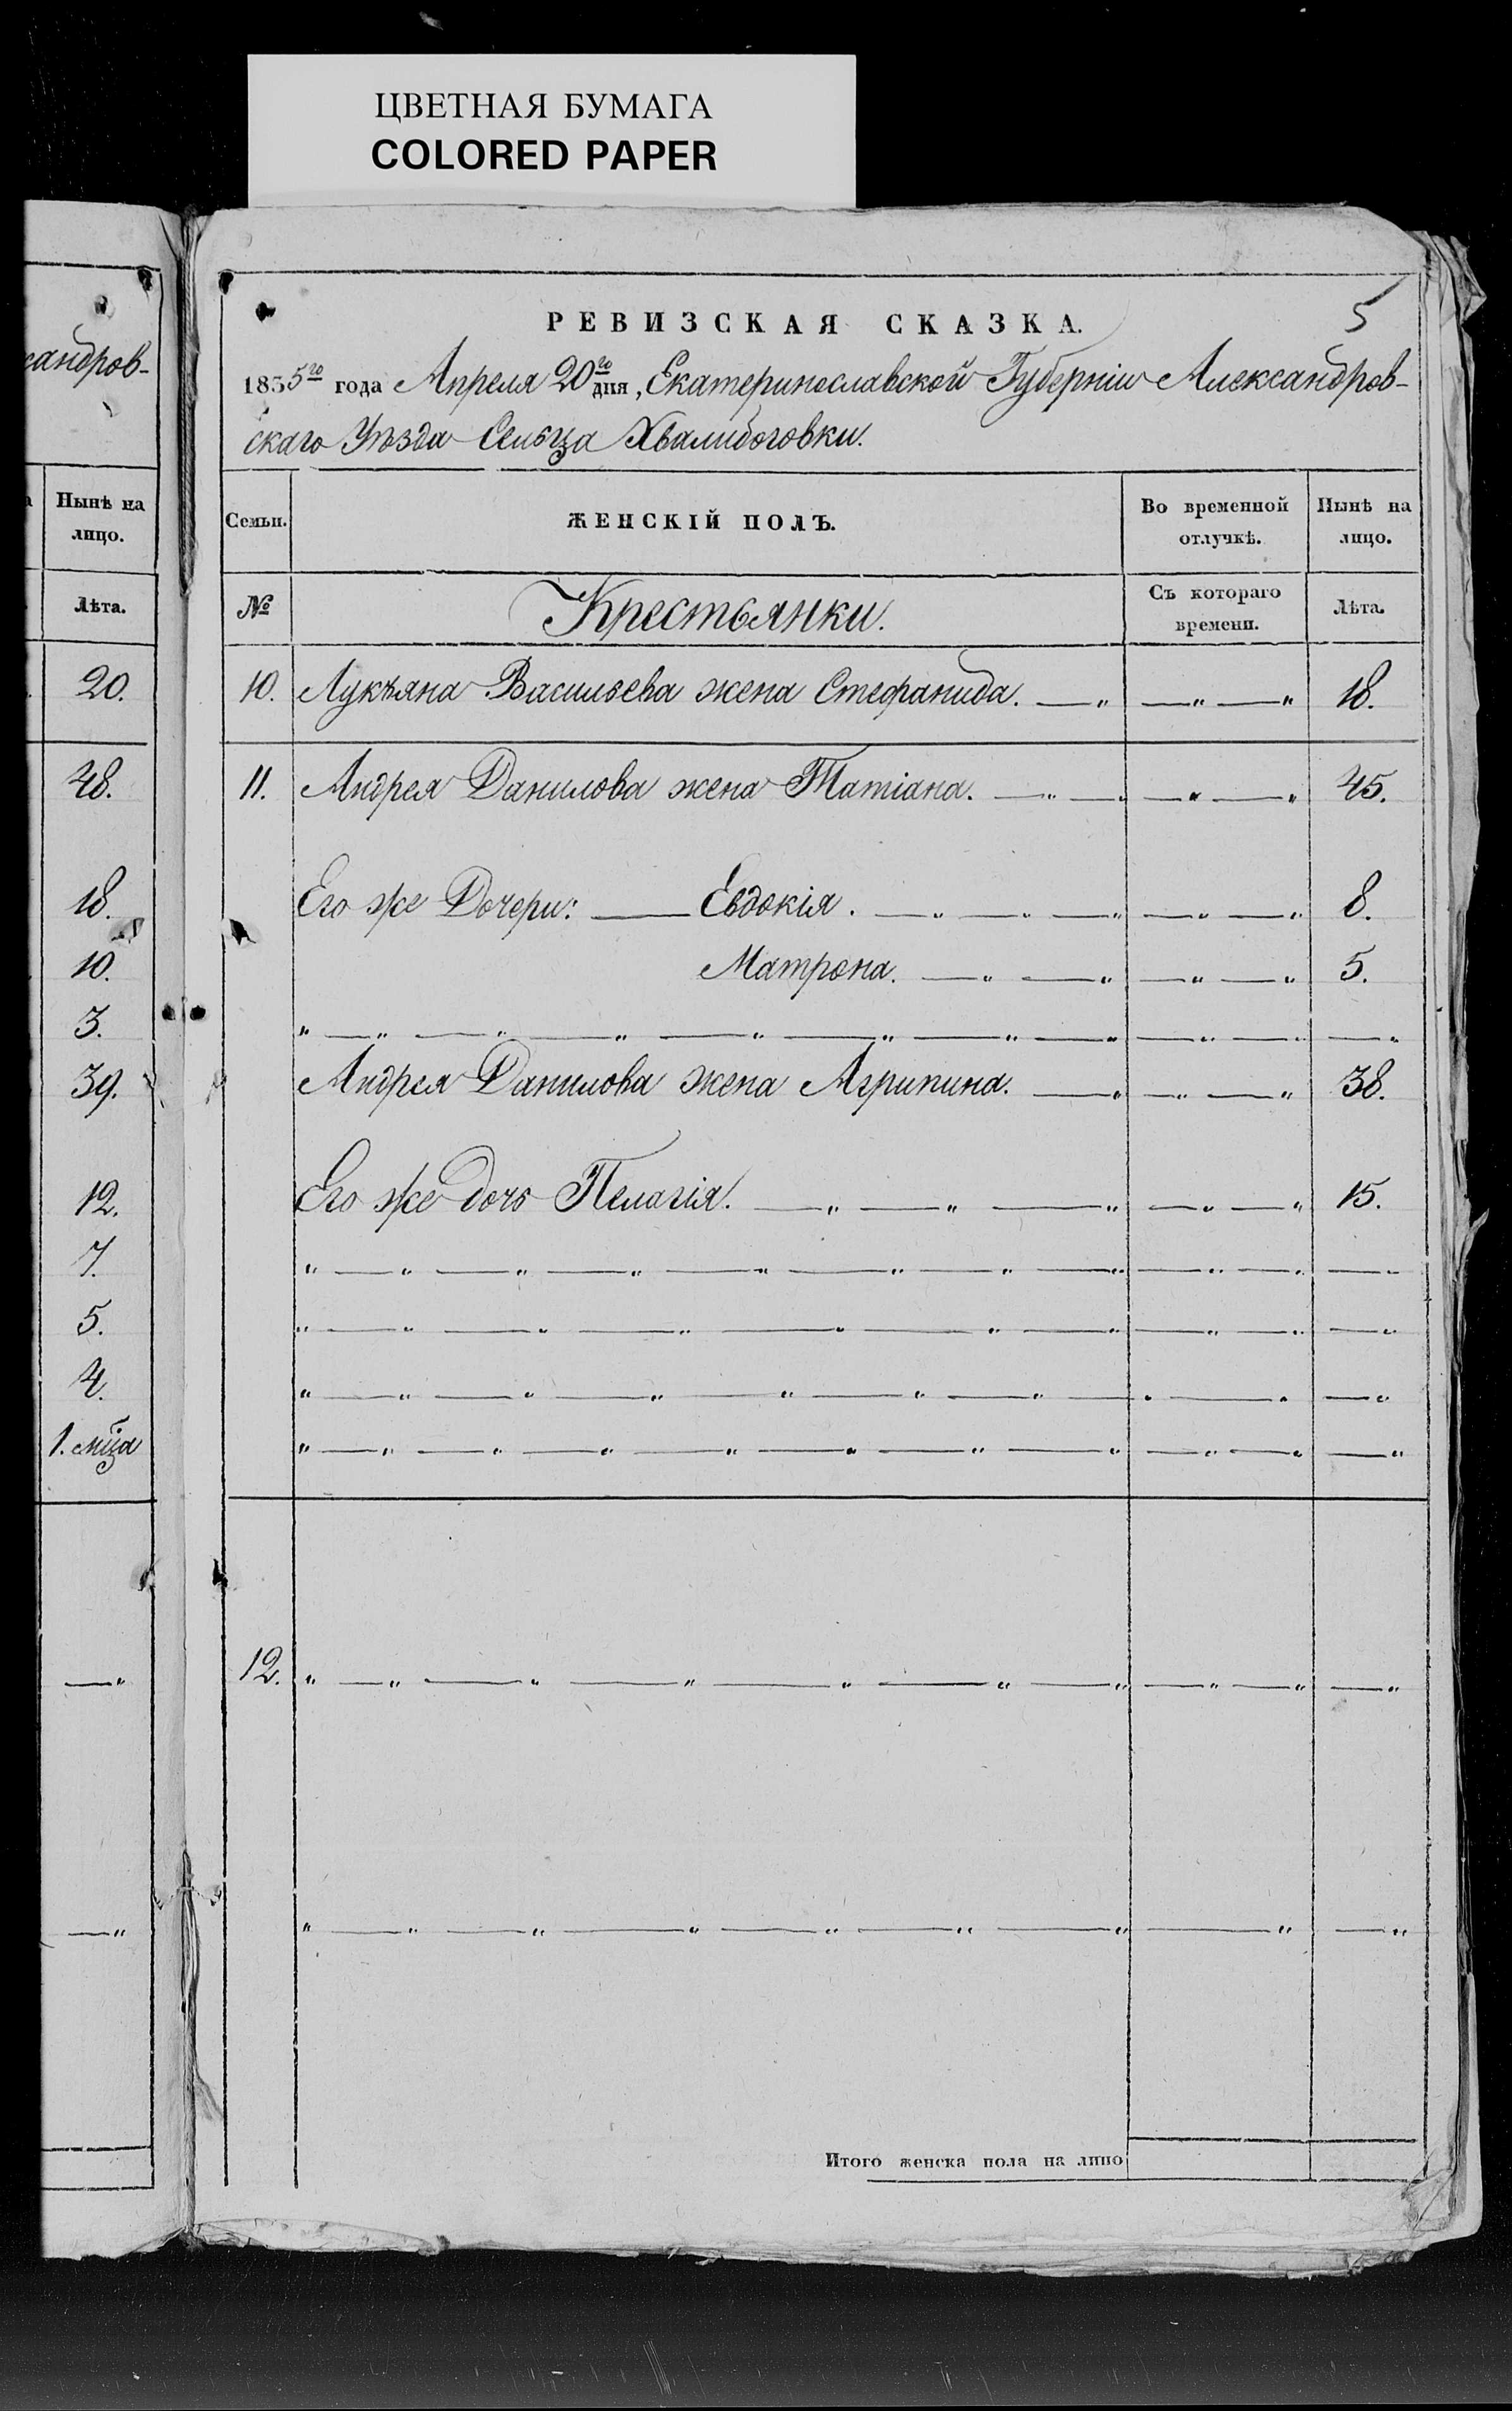 ЦВЕТНАЯ БУМАГА
COLORED PAPER
сандров-
Нынѣ на
лицо.
Лѣта.
20.
48.
18.
10.
3.
39.
12.
7.
5.
4.
1. мца
5
РЕВИЗСКАЯ СКАЗКА.
1835го года Апреля 20го дня, Екатеринославской Губерніи Александров-
скаго Уѣзда Сельца Хвалибоговки.
Семьи. ЖЕНСКІЙ ПОЛЪ. Во временной отлучкѣ. Нынѣ на лицо.
№ Крестьянки. Съ котораго времени. Лѣта.
10. Лукъяна Васильева жена Стефанида. — „ — „ — „ 18.
11. Андрея Данилова жена Татіана. — „ — „ — „ — „ 45.
Его же Дочери: — Евдокія. — „ — „ — „ — „ — „ 8.
Матрона. — „ — „ — „ — „ 5.
„ — „ — „ — „ — „ — „ — „ — „ — „ — „ — „
Андрея Данилова жена Агрипина. — „ — „ — „ 38.
Его же дочь Пелагія. — „ — „ — „ — „ — „ 15.
„ — „ — „ — „ — „ — „ — „ — „ — „ — „ — „
„ — „ — „ — „ — „ — „ — „ — „ — „ — „
„ — „ — „ — „ — „ — „ — „ — „ — „ — „
„ — „ — „ — „ — „ — „ — „ — „ — „ — „ — „
12. „ — „ — „ — „ — „ — „ — „ — „ — „ — „
„ — „ — „ — „ — „ — „ — „ — „ — „
Итого женска пола на лицо